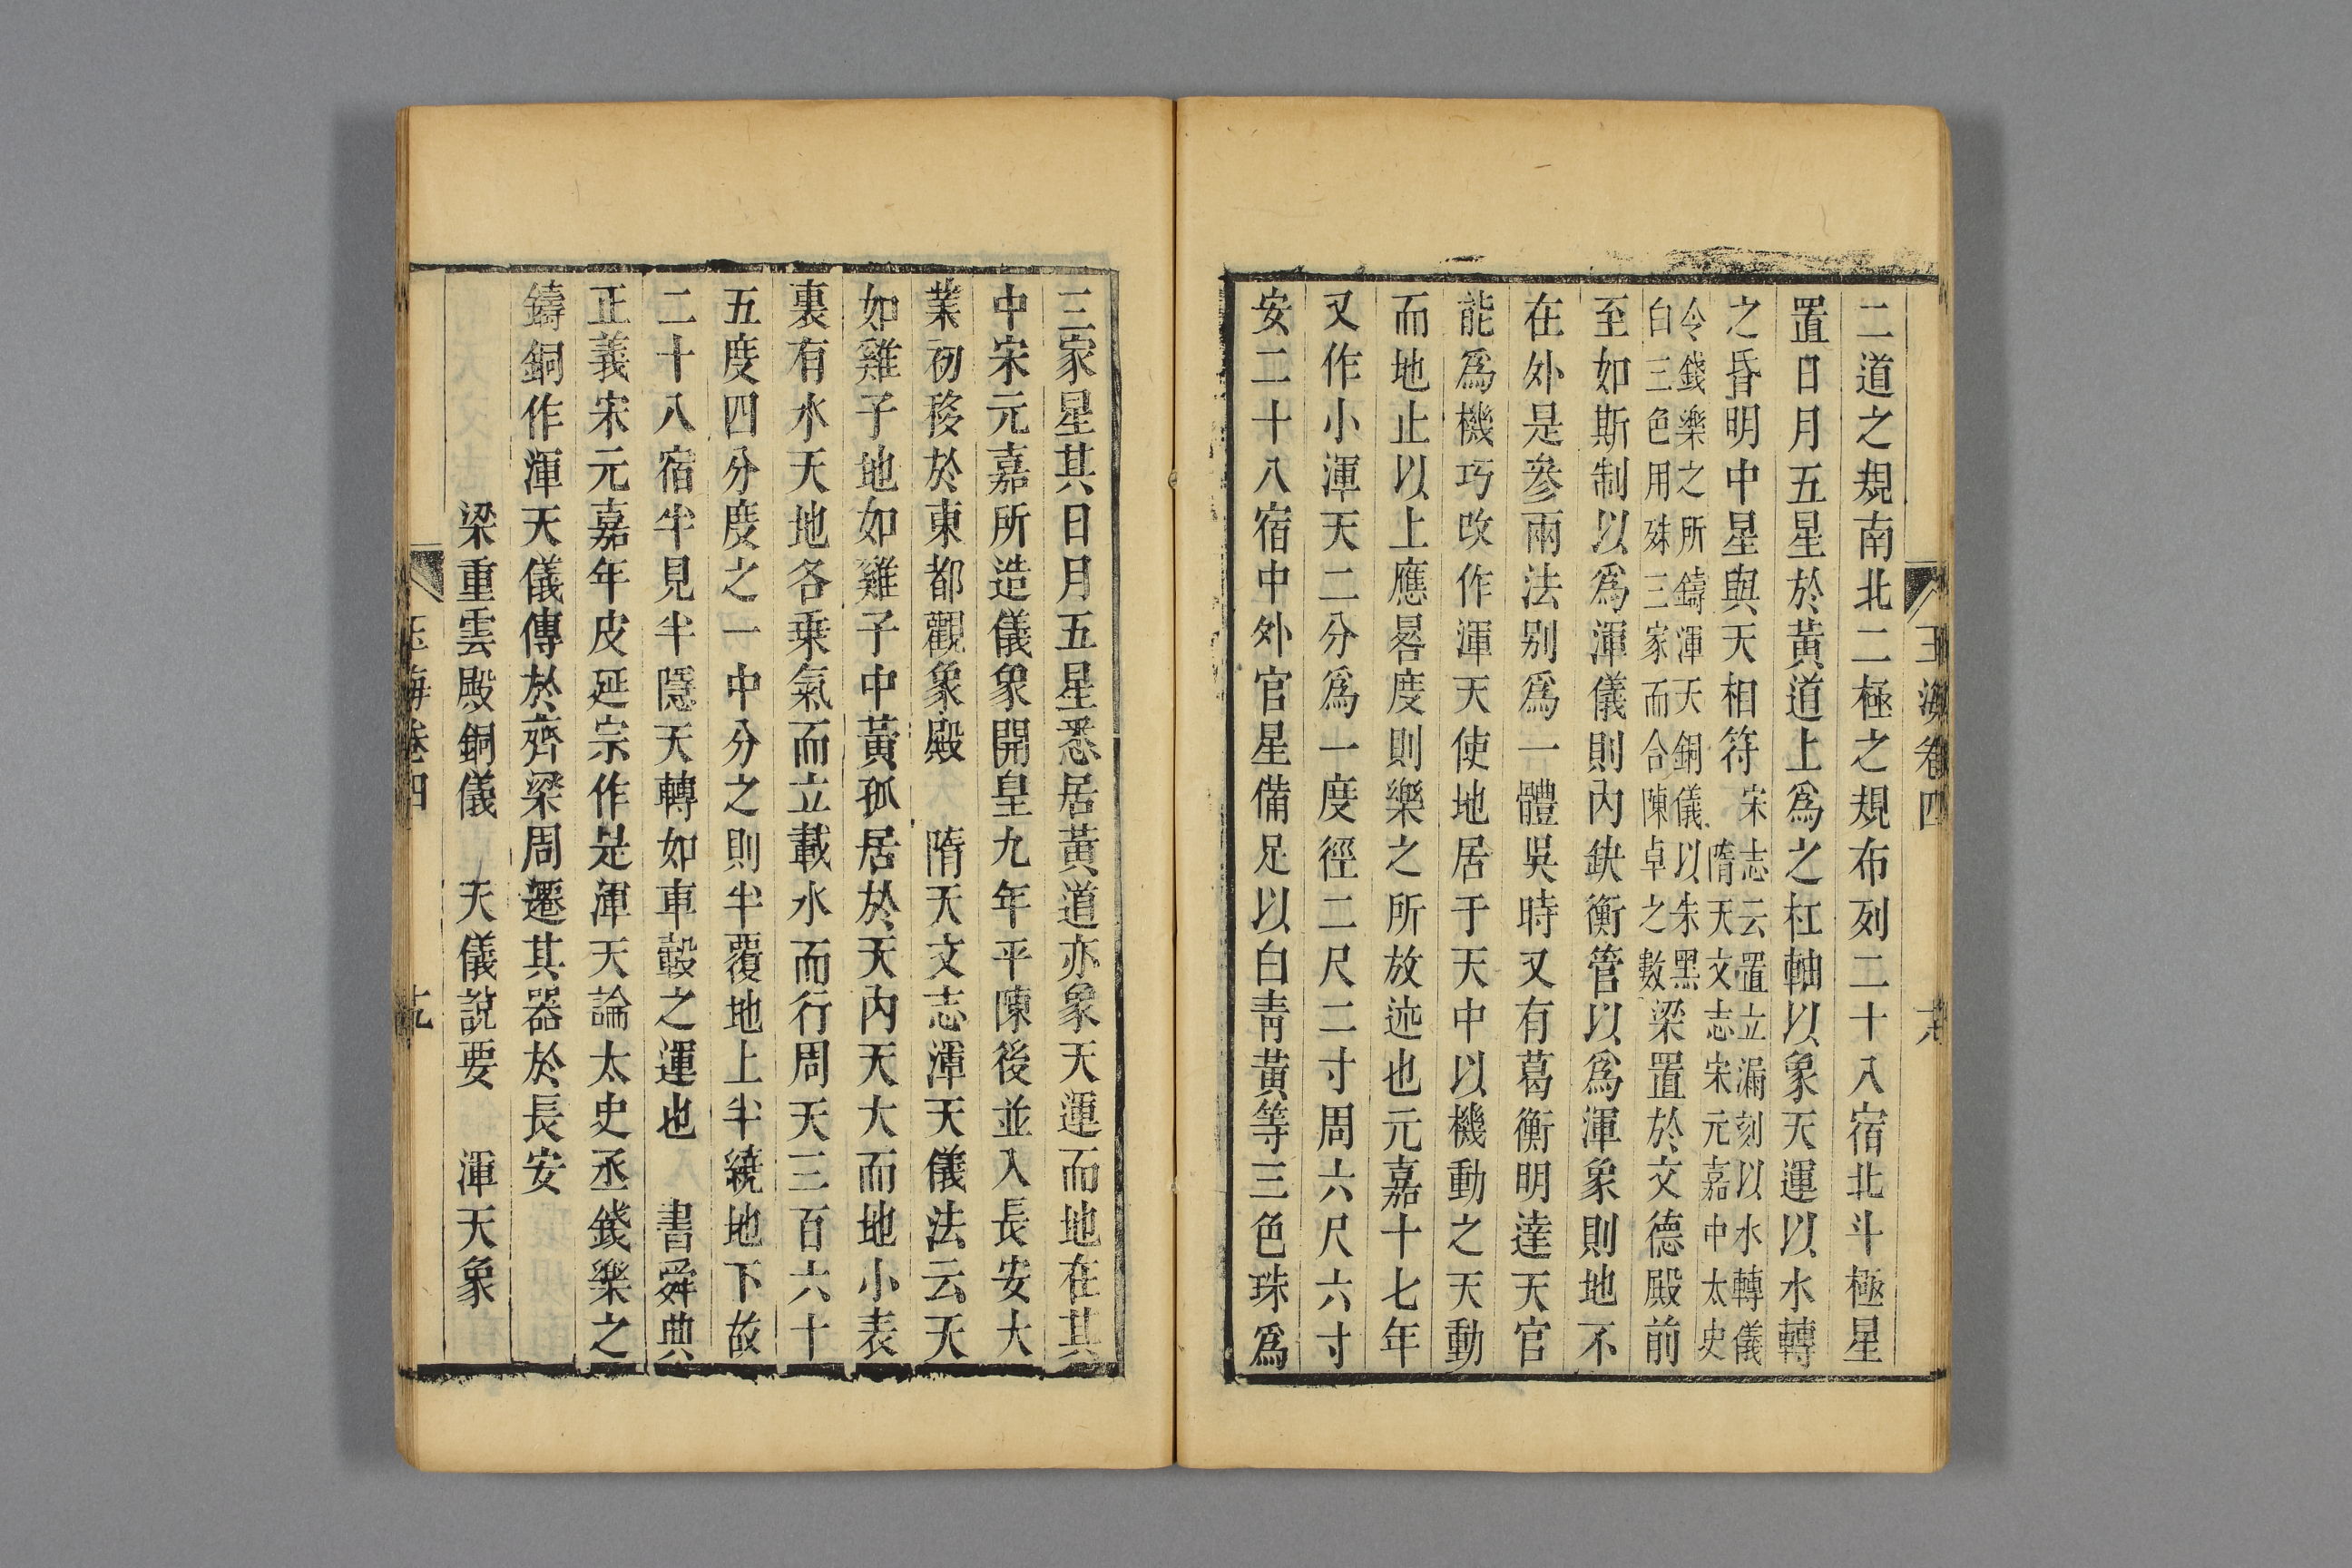 玉海卷四
二道之規南北二極之規布列二十八宿北斗極星
置日月五星於黃道上爲之杠軸以象天運以水轉
之昏明中星與天相符宋志云置立漏刻以水轉儀
隋天文志宋元嘉中太史
令錢樂之所鑄渾天銅儀以朱黑
白三色用殊三家而合陳卓之數梁置於文德殿前
至如斯制以爲渾儀則內鈌衡管以爲渾象則地不
在外是參兩法别爲一體吳時又有葛衡明達天官
能爲機巧改作渾天使地居于天中以機動之天動
而地止以上應晷度則樂之所放迹也元嘉十七年
又作小渾天二分爲一度徑二尺二寸周六尺六寸
安二十八宿中外官星備足以白靑黃等三色珠爲
三家星其日月五星悉居黃道亦象天運而地在其
中宋元嘉所造儀象開皇九年平陳後並入長安大
業初移於東都觀象殿 隋天文志渾天儀法云天
如雞子地如雞子中黃孤居於天內天大而地小表
裏有水天地各乗氣而立載水而行周天三百六十
五度四分度之一中分之則半覆地上半繞地下故
二十八宿半見半隱天轉如車轂之運也 書舜典
正義宋元嘉年皮延宗作是渾天論太史丞錢樂之
鑄銅作渾天儀傳於齊梁周遷其器於長安
梁重雲殿銅儀 天儀說要 渾天象
玉海卷四